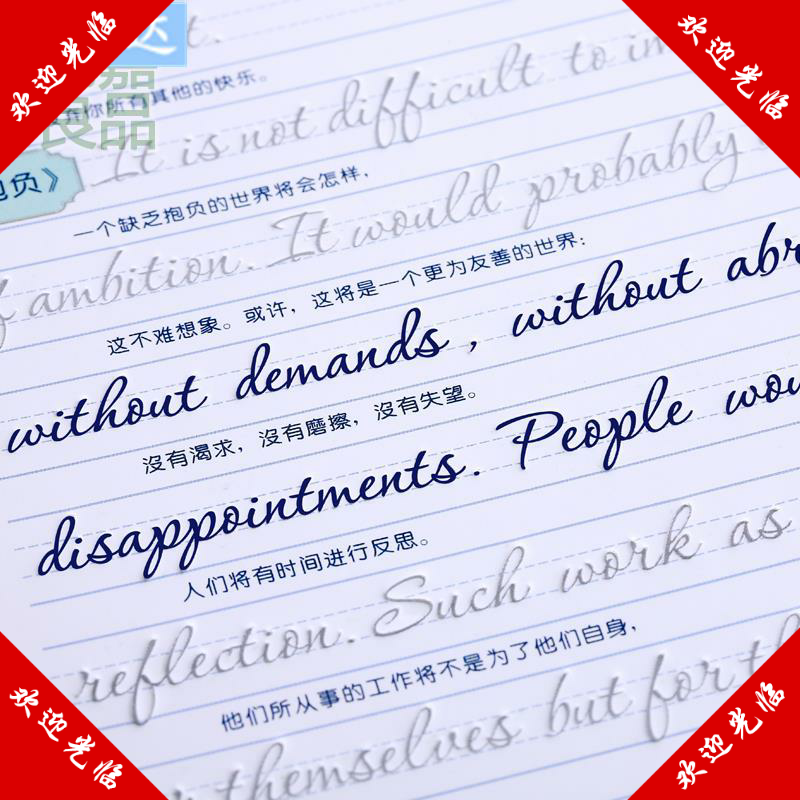 欢迎光临
欢迎光临
良品
你所有其他的快乐。
It is not difficult to im
抱负》
一个缺乏抱负的世界将会怎样,
f ambition. It would probably
这不难想象。或许,这将是一个更为友善的世界:
without demands, without abr
沒有渴求,沒有磨擦,沒有失望。
disappointments. People wou
人们将有时间进行反思。
reflection. Such work as
他们所从事的工作将不是为了他们自身,
themselves but for th
欢迎光临
欢迎光临